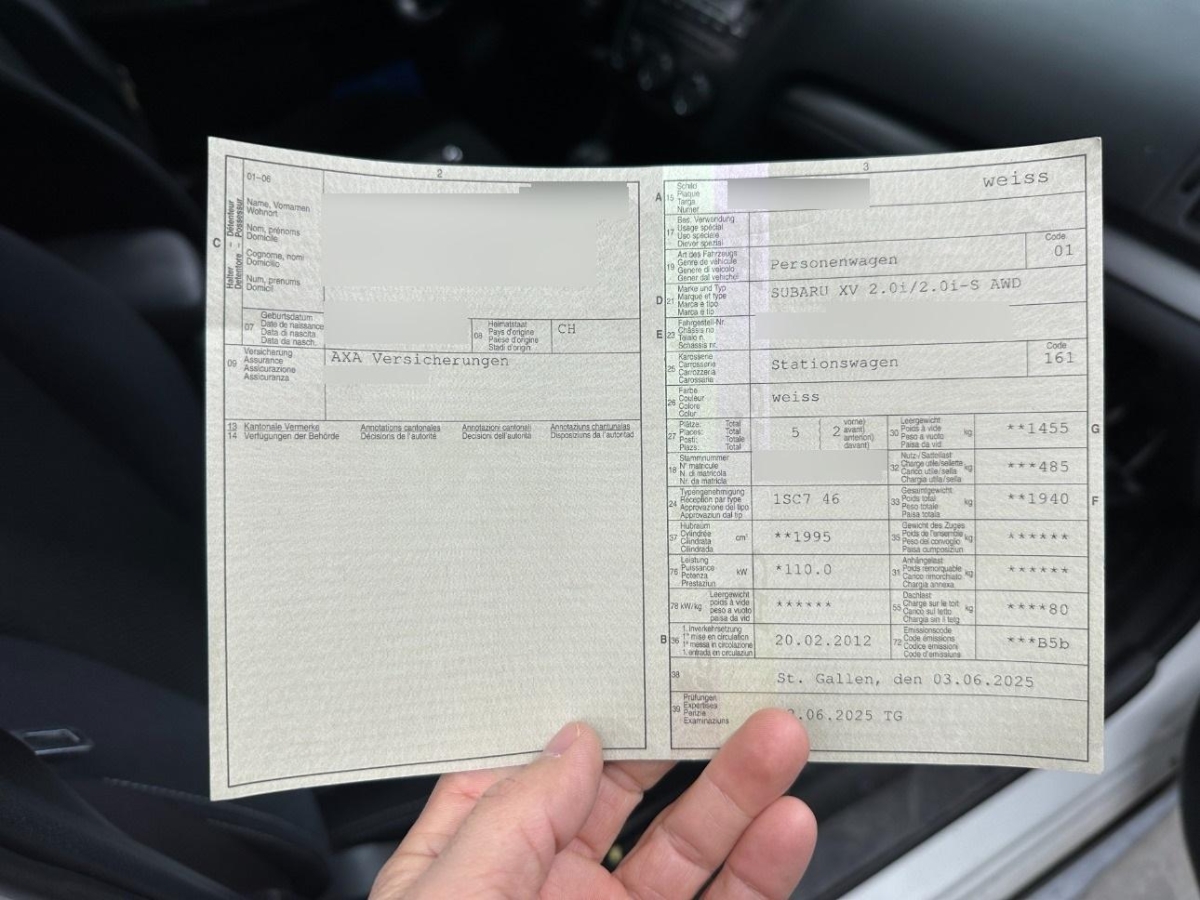 2
01-06
Halter Détenteur
Detentore Possessur
C
Name, Vornamen
Wohnort
Nom, prénoms
Domicile
Cognome, nomi
Domicilio
Num, prenums
Domicil
07
Geburtsdatum
Date de naissance
Data di nascita
Data da nasch.
08
Heimatstaat
Pays d'origine
Paese d'origine
Stadi d'origin
CH
09
Versicherung
Assurance
Assicurazione
Assicuranza
AXA Versicherungen
13 Kantonale Vermerke Annotations cantonales Annotazioni cantonali Annotaziuns chantunalas
14 Verfügungen der Behörde Décisions de l'autorité Decisioni dell'autorità Disposiziuns da l'autoritad
3
A
15
Schild
Plaque
Targa
Numer
weiss
17
Bes. Verwendung
Usage spécial
Uso speciale
Diever spezial
19
Art des Fahrzeugs
Genre de véhicule
Genere di veicolo
Gener dal vehichel
Personenwagen
Code
01
D
21
Marke und Typ
Marque et type
Marca e tipo
Marca e tip
SUBARU XV 2.0i/2.0i-S AWD
E
23
Fahrgestell-Nr.
Châssis no
Telaio n.
Schassis nr.
25
Karosserie
Carrosserie
Carrozzeria
Carossaria
Stationswagen
Code
161
26
Farbe
Couleur
Colore
Colur
weiss
27
Plätze: Total
Places: Total
Posti: Totale
Plazs: Total
5
2
vorne)
avant)
anteriori)
davant)
30
Leergewicht
Poids à vide
Peso a vuoto
Paisa da vid
kg
**1455
G
18
Stammnummer
N° matricule
N. di matricola
Nr. da matricla
32
Nutz-/Sattellast
Charge utile/sellette
Carico utile/sella
Chargia utila/sella
kg
***485
24
Typengenehmigung
Réception par type
Approvazione del tipo
Approvaziun dal tip
1SC7 46
33
Gesamtgewicht
Poids total
Peso totale
Paisa totala
kg
**1940
F
37
Hubraum
Cylindrée
Cilindrata
Cilindrada
cm³
**1995
35
Gewicht des Zuges
Poids de l'ensemble
Peso del convoglio
Paisa cumposiziun
kg
******
76
Leistung
Puissance
Potenza
Prestaziun
kW
*110.0
31
Anhängelast
Poids remorquable
Carico rimorchiato
Chargia annexa
kg
******
78 kW/kg
Leergewicht
poids à vide
peso a vuoto
paisa da vid
******
55
Dachlast
Charge sur le toit
Carico sul tetto
Chargia sin il tetg
kg
****80
B
36
1. Inverkehrsetzung
1re mise en circulation
1a messa in circolazione
1. entrada en circulaziun
20.02.2012
72
Emissionscode
Code émissions
Codice emissioni
Code d'emissiuns
***B5b
38
St. Gallen, den 03.06.2025
39
Prüfungen
Expertises
Perizie
Examinaziuns
.06.2025 TG